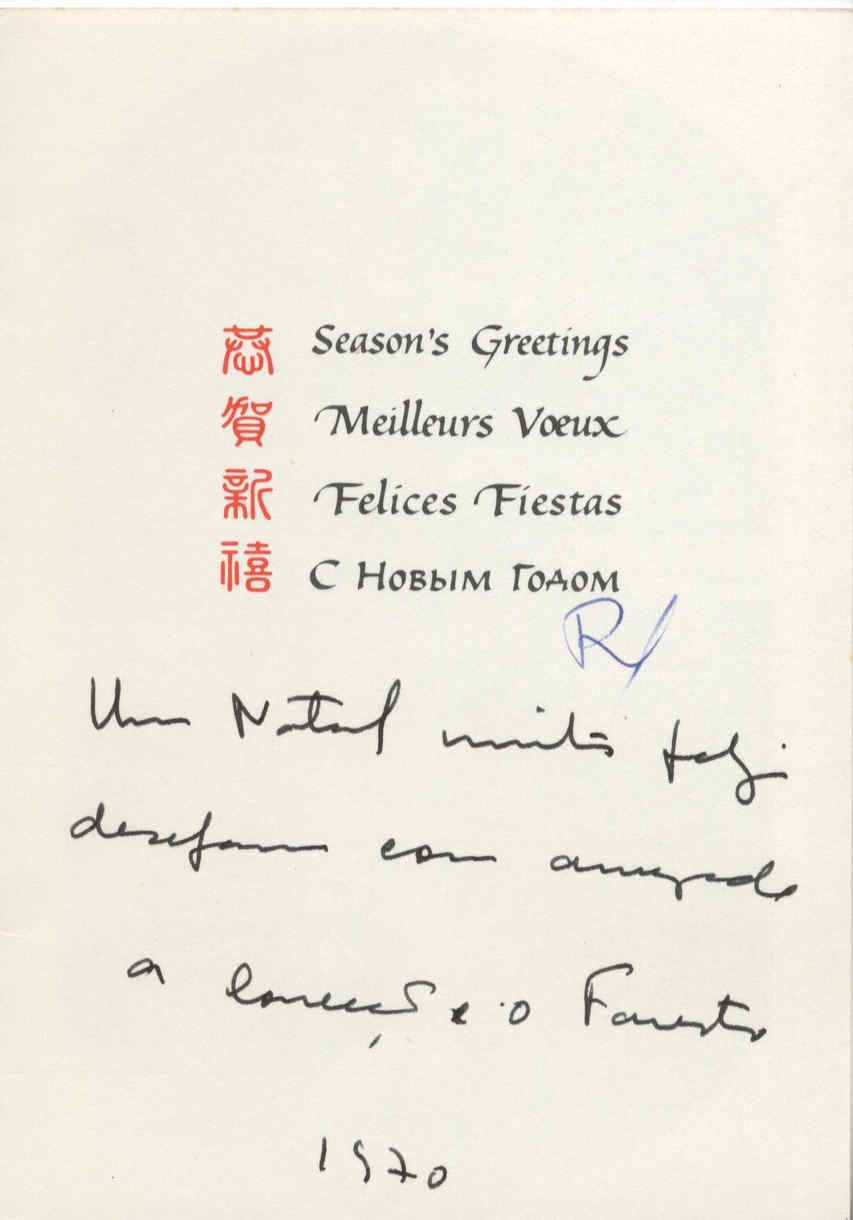 恭賀新禧
Season's Greetings
Meilleurs Vœux
Felices Fiestas
С Новым Годом
R/
Um Natal muito feliz
desejam com amizade
a Conceição e o Fausto
1970